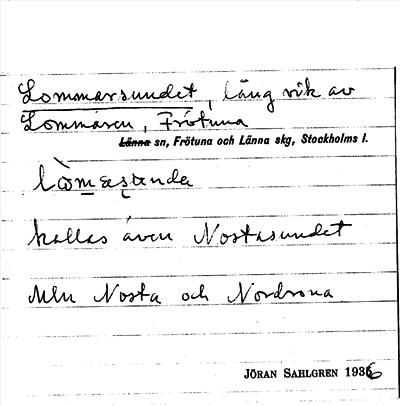 Lommarsundet, läng vik av
Lommaren, Frötuna
Länna sn, Frötuna och Länna skg, Stockholms l.
kallas även Nostasundet
Mln Nosta och Nordrona
JÖRAN SAHLGREN 1936